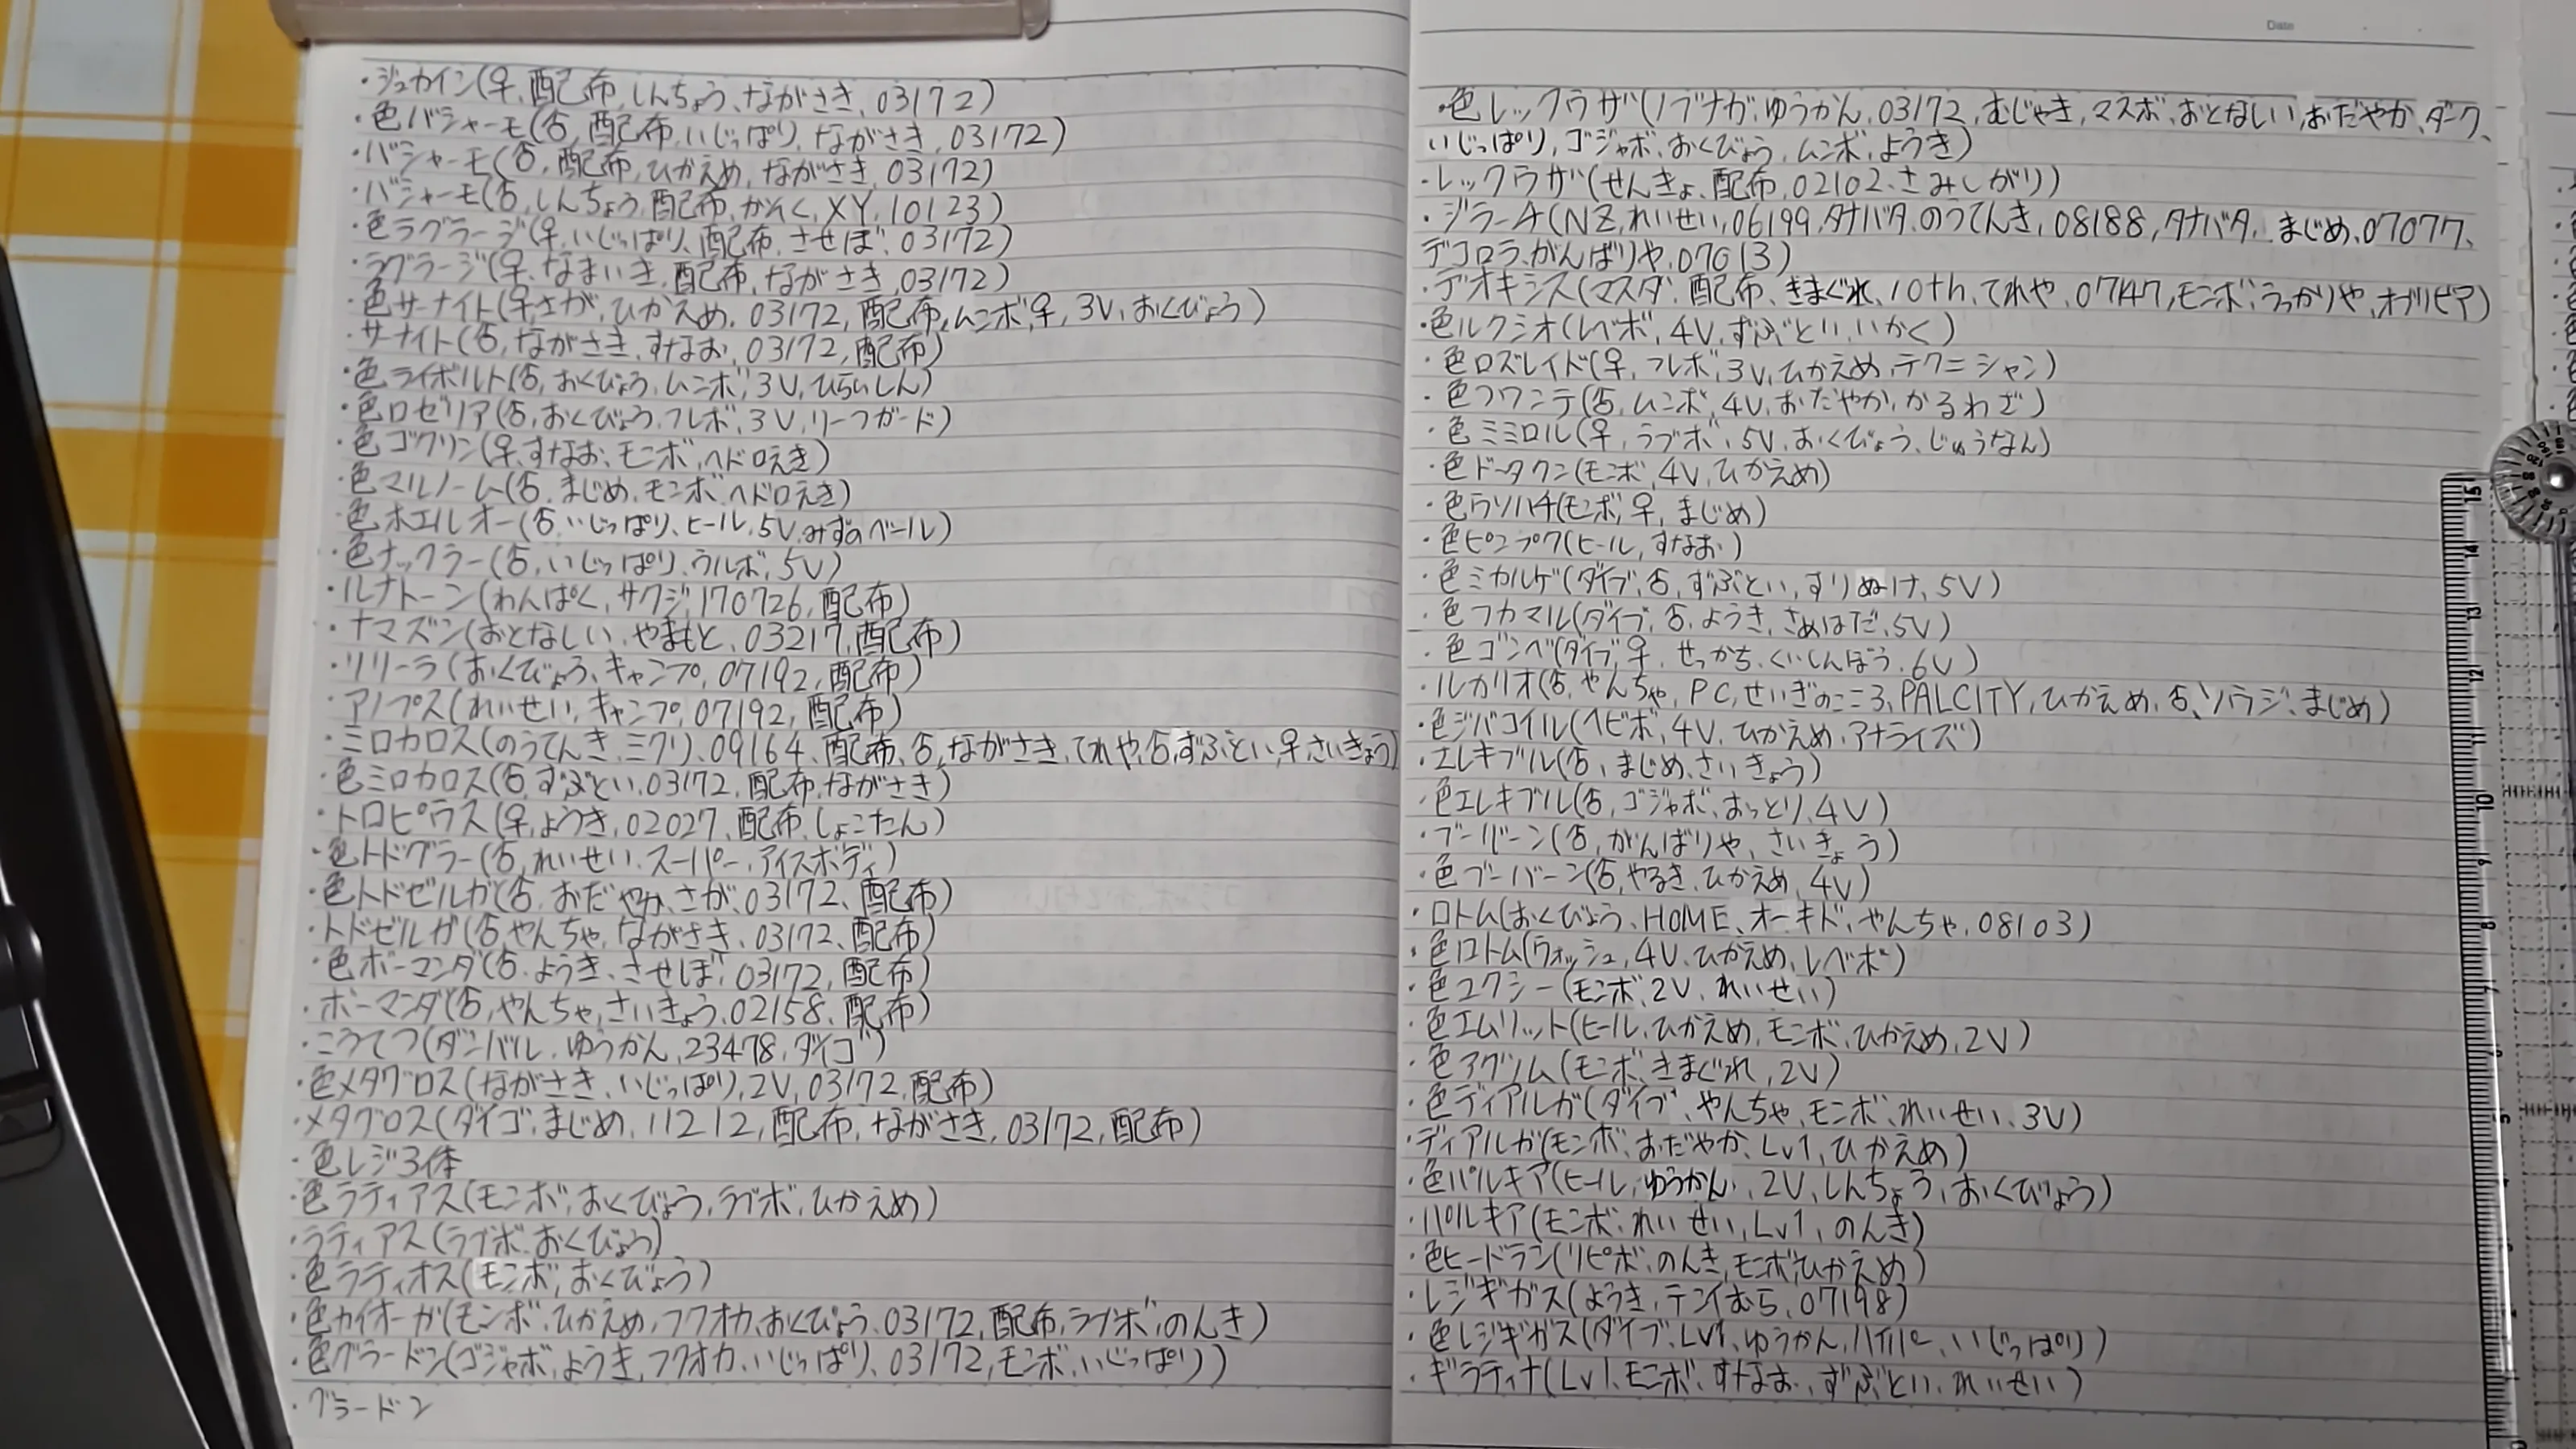 ・ジュカイン(♀、配布、しんちょう、ながさき、03172)
・色バシャーモ(♂、配布、いじっぱり、ながさき、03172)
・バシャーモ(♂、配布、ひかえめ、ながさき、03172)
・バシャーモ(♂、しんちょう、配布、かそく、XY、10123)
・色ラグラージ(♀、いじっぱり、配布、させぼ、03172)
・ラグラージ(♀、なまいき、配布、ながさき、03172)
・色サーナイト(♀、さが、ひかえめ、03172、配布、ムンボ、♀、3V、おくびょう)
・サーナイト(♂、ながさき、すなお、03172、配布)
・色ライボルト(♂、おくびょう、ムンボ、3V、ひらいしん)
・色ロゼリア(♂、おくびょう、フレボ、3V、リーフガード)
・色ゴクリン(♀、すなお、モンボ、ヘドロえき)
・色マルノーム(♂、まじめ、モンボ、ヘドロえき)
・色ホエルオー(♂、いじっぱり、ヒール、5V、みずのベール)
・色ナックラー(♂、いじっぱり、ウルボ、5V)
・ルナトーン(わんぱく、サクジ、170726、配布)
・ナマズン(おとなしい、やまもと、03217、配布)
・リリーラ(おくびょう、キャンプ、07192、配布)
・アノプス(れいせい、キャンプ、07192、配布)
・ミロカロス(のうてんき、ミクリ)、09164、配布、♂、ながさき、てれや、♂、ずぶとい、♀、さいきょう)
・色ミロカロス(♂、ずぶとい、03172、配布、ながさき)
・トロピウス(♀、ようき、02027、配布、しょこたん)
・色トドグラー(♂、れいせい、スーパー、アイスボディ)
・色トドゼルガ(♂、おだやか、さが、03172、配布)
・トドゼルガ(♂、やんちゃ、ながさき、03172、配布)
・色ボーマンダ(♂、ようき、させぼ、03172、配布)
・ボーマンダ(♂、やんちゃ、さいきょう、02158、配布)
・こうてつ(ダンバル、ゆうかん、23478、ダイゴ)
・色メタグロス(ながさき、いじっぱり、2V、03172、配布)
・メタグロス(ダイゴ、まじめ、11212、配布、ながさき、03172、配布)
・色レジ3体
・色ラティアス(モンボ、おくびょう、ラブボ、ひかえめ)
・ラティアス(ラブボ、おくびょう)
・色ラティオス(モンボ、おくびょう)
・色カイオーガ(モンボ、ひかえめ、フクオカ、おくびょう、03172、配布、ラブボ、のんき)
・色グラードン(ゴジャボ、ようき、フクオカ、いじっぱり、03172、モンボ、いじっぱり))
・グラードン
Date
・色レックウザ(ノブナガ、ゆうかん、03172、むじゃき、マスボ、おとなしい、おだやか、ダーク、
いじっぱり、ゴジャボ、おくびょう、ムンボ、ようき)
・レックウザ(せんきょ、配布、02102、さみしがり)
・ジラーチ(NZ、れいせい、06199、タナバタ、のうてんき、08188、タナバタ、まじめ、07077、
デコロラ、がんばりや、07013)
・デオキシス(マスダ、配布、きまぐれ、10th、てれや、07147、モンボ、うっかりや、オブリビア)
・色ルクシオ(レベボ、4V、ずぶとい、いかく)
・色ロズレイド(♀、フレボ、3V、ひかえめ、テクニシャン)
・色フワンテ(♂、ムンボ、4V、おだやか、かるわざ)
・色ミミロル(♀、ラブボ、5V、おくびょう、じゅうなん)
・色ドータクン(モンボ、4V、ひかえめ)
・色ウソハチ(モンボ、♀、まじめ)
・色ピンプク(ヒール、すなお)
・色ミカルゲ(ダイブ、♂、ずぶとい、すりぬけ、5V)
・色フカマル(ダイブ、♂、ようき、さめはだ、5V)
・色ゴンベ(ダイブ、♀、せっかち、くいしんぼう、6V)
・ルカリオ(♂、やんちゃ、PC、せいぎのこころ、PALCITY、ひかえめ、♂、ソウジ、まじめ)
・色ジバコイル(ヘビボ、4V、ひかえめ、アナライズ)
・エレキブル(♂、まじめ、さいきょう)
・色エレキブル(♂、ゴジャボ、おっとり、4V)
・ブーバーン(♂、がんばりや、さいきょう)
・色ブーバーン(♂、やるき、ひかえめ、4V)
・ロトム(おくびょう、HOME、オーキド、やんちゃ、08103)
・色ロトム(ウォッシュ、4V、ひかえめ、レベボ)
・色ユクシー(モンボ、2V、れいせい)
・色エムリット(ヒール、ひかえめ、モンボ、ひかえめ、2V)
・色アグノム(モンボ、きまぐれ、2V)
・色ディアルガ(ダイブ、やんちゃ、モンボ、れいせい、3V)
・ディアルガ(モンボ、おだやか、Lv1、ひかえめ)
・色パルキア(ヒール、ゆうかん、2V、しんちょう、おくびょう)
・パルキア(モンボ、れいせい、Lv1、のんき)
・色ヒードラン(リピボ、のんき、モンボ、ひかえめ)
・レジギガス(ようき、テンイむら、07198)
・色レジギガス(ダイブ、Lv1、ゆうかん、ハイパー、いじっぱり)
・ギラティナ(Lv1、モンボ、すなお、ずぶとい、れいせい)
15
14
13
12
11
10
9
8
7
5